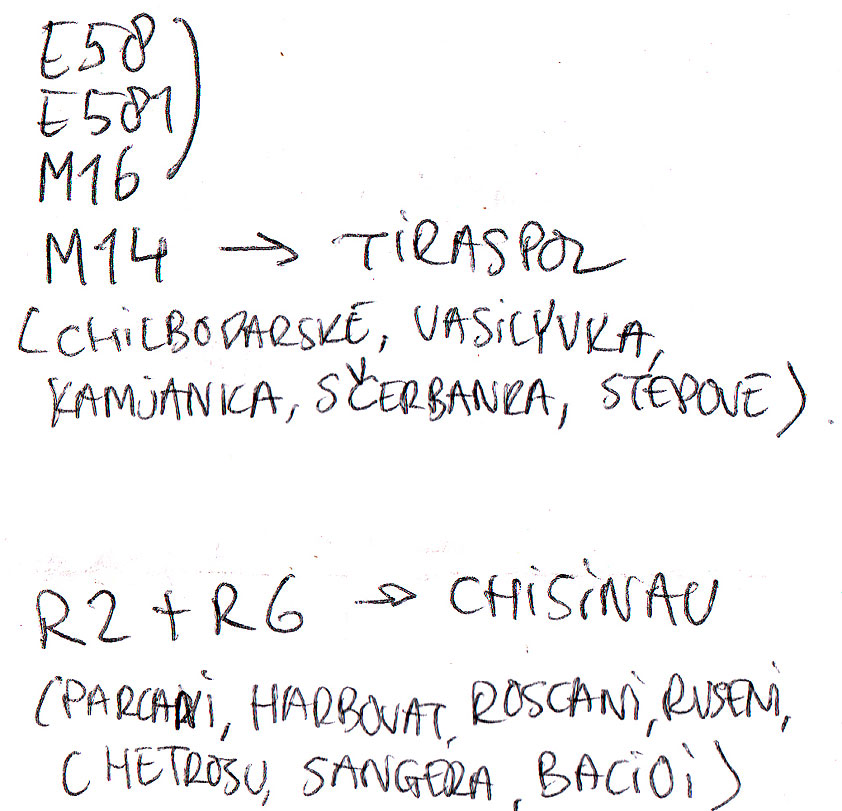 E58
E581
M16
M14 → TIRASPOL
(CHILBODARSKE, VASILYVKA,
KAMJANKA, SČERBANKA, STEPOVE)
R2 + R6 → CHISINAU
(PARCANI, HARBOVAT, ROSCANI, RUSENI,
CHETROSU, SANGERA, BACIOI)